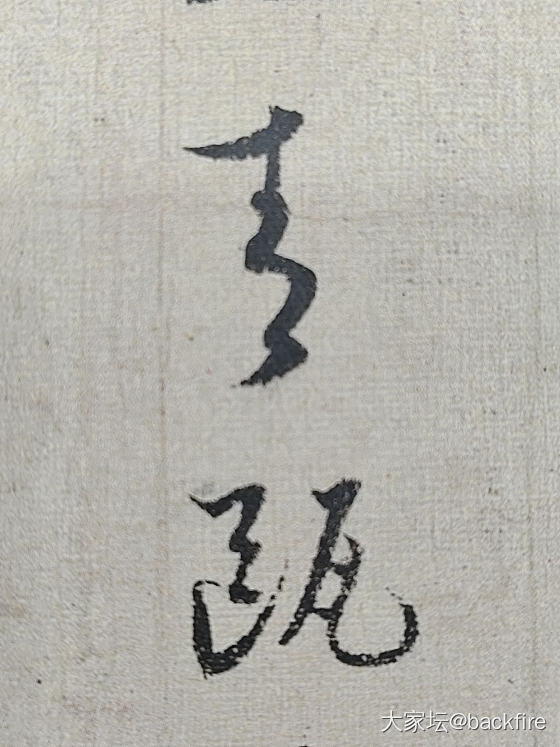 青
甌
大家坛@backfire